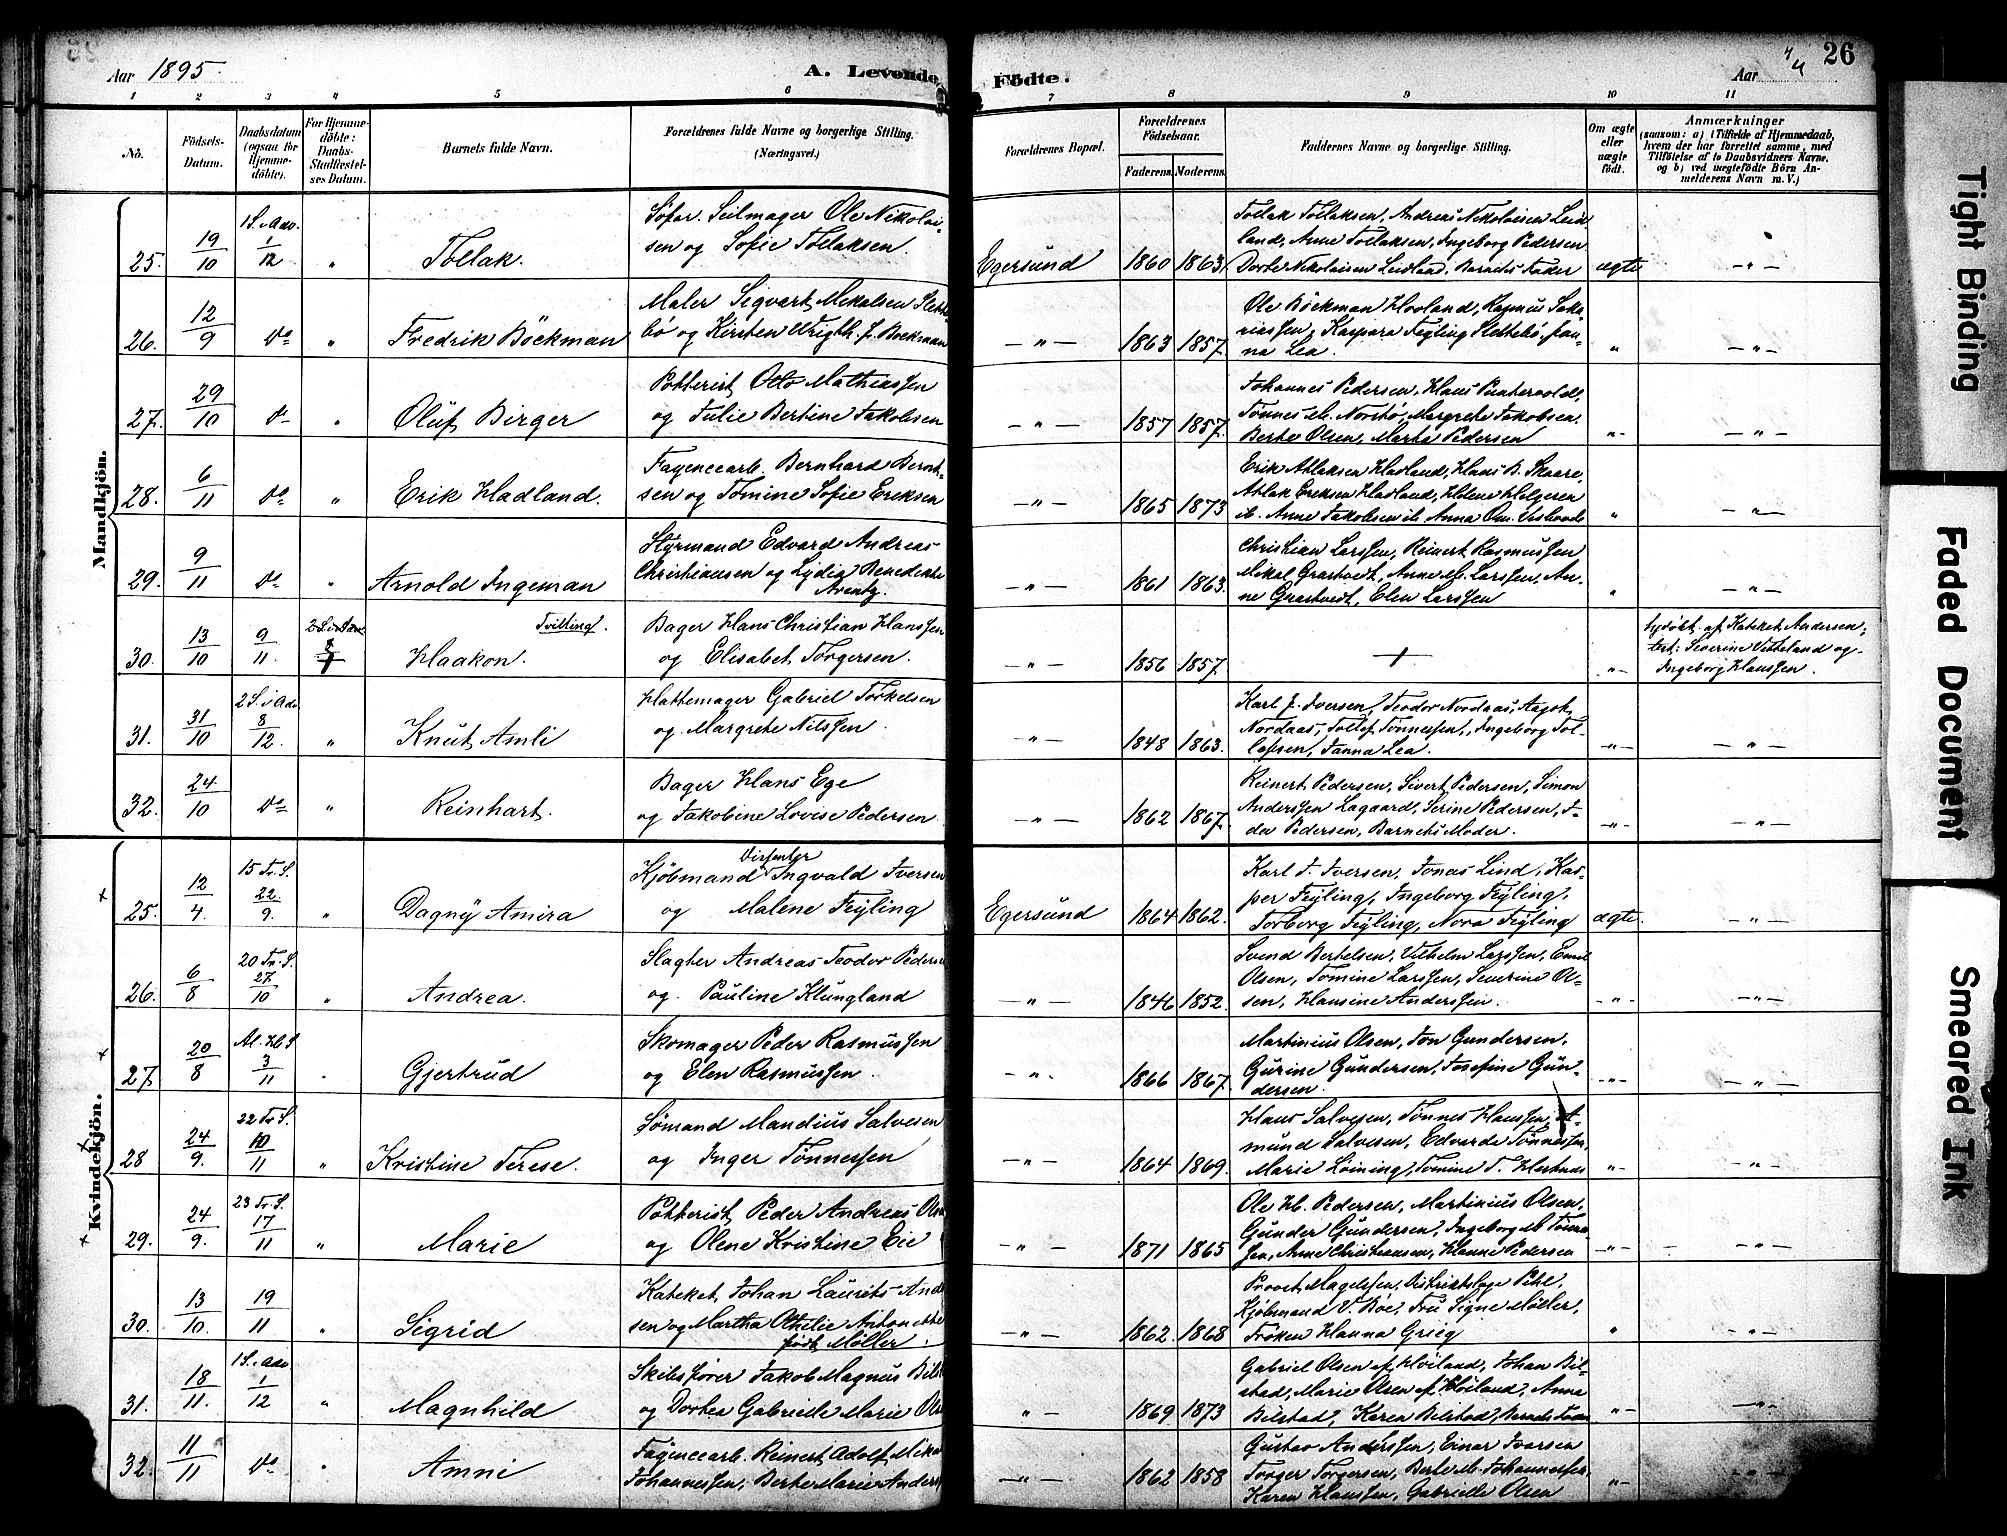 Aar 1895.
A. Levende
Födte.
Aar
26
1 2 3 4 5 6 7 8 9 10 11
No.
Födsels-Datum.
Daabsdatum (ogsaa for Hjemme-döbte).
For Hjemme-döbte: Daabs-Stadfæstel-ses Datum.
Barnets fulde Navn.
Forældrenes fulde Navne og borgerlige Stilling. (Næringsvei.)
Forældrenes Bopæl.
Forældrenes Födselsaar.
Faderens. Moderens.
Faddernes Navne og borgerlige Stilling.
Om ægte eller uægte födt.
Anmærkninger
(saasom: a) i Tilfælde af Hjemmedaab, hvem der har forrettet samme, med Tilföielse af to Daabsvidners Navne, og b) ved uægtefödte Börn An-melderens Navn m. V.)
Mandkjön.
25. 19/10 1 S. i Adv. 1/12 " Tollak. Söfar. Seilmager Ole Nikolai-
sen og Sofie Tollaksen. Egersund 1860 1863. Tollak Tollaksen, Andreas Nikolaisen Leid-
land, Anne Tollaksen, Ingeborg Pedersen
Dorte Nikolaisen Leidland, Barnets Fader ægte - " -
26. 12/9 do " Fredrik Böckman Maler Sigvart Mikalsen Slette-
bö og Kirsten Wrigth f. Böckman - " - 1863 1857. Ole Böckman Hovland, Rasmus Saka-
riassen, Kaspara Feyling Slettebö, Jan-
na Lea. " - " -
27. 29/10 do " Oluf Birger Potterist Otto Mathiassen
og Julie Bertine Jakobsen - " - 1857 1857. Johannes Pedersen, Klaus Puntervold,
Tönnes M. Norstö, Margrete Jakobsen,
Berte Olsen, Marta Pedersen " - " -
28. 6/11 do " Erik Hadland. Fayencearb. Bernhard Bernt-
sen og Tomine Sofie Eriksen - " - 1865 1873 Erik Atlaksen Hadland, Hans B. Skaare,
Atlak Eriksen Hadland, Helene Holgersen
ib. Anne Jakobsen ib. Anna Om. " - " -
29. 9/11 do " Arnold Ingeman Styrmand Edvard Andreas
Christiansen og Lydia Benedikte
Arentz. - " - 1861 1863. Christian Larssen, Reinert Rasmussen
Mikal Grastveit, Anne M. Larssen, An-
ne Grastveit, Elen Larssen " - " -
30. 13/10 9/11. 2 S. i Adv. 8/ Tvilling. Haakon. Bager Hans Christian Hanssen
og Elisabet Torgersen. - " - 1856 1857. + " - Hjdöbt af Kateket Andersen;
test: Severine Vetteland og
Ingeborg Hanssen.
31. 31/10 2 S. i Adv 8/12. " Knut Amli Hattemager Gabriel Torkelsen
og Margrete Nilssen. - " - 1848 1863. Karl J. Iversen, Teodor Nordaas, Aagot
Nordaas, Tollef Tönnessen, Ingeborg Tol-
lefsen, Janna Lea. - " - - " -
32. 24/10 do " Reinhart. Bager Hans Ege
og Jakobine Lovise Pedersen - " - 1862 1867. Reinert Pedersen, Sivert Pedersen, Simon
Anderssen Lagaard, Serine Pedersen, I-
da Pedersen, Barnets Moder. - " - - " -
Kvindekjön.
25. 12/4. 15 Tr. S. 22/9. " Dagny Amira Kjöbmand Ingvald Iversen
og Malene Feyling Egersund 1864 1862. Karl J. Iversen, Jonas Lind, Kas-
per Feyling, Ingeborg Feyling,
Torborg Feyling, Nora Feyling ægte. - " -
26. 6/8 20 Tr. S. 27/10 " Andrea. Slagter Andreas Teodor Peders
og Pauline Klungland - " - 1846 1852. Svend Bertelsen, Vilhelm Larssen, Emil
Olsen, Tomine Larssen, Severine Ol-
sen, Hansine Anderssen. - " - - " -
27. 20/8 Al. H. S 3/11 " Gjertrud Skomager Peder Rasmussen
og Elen Rasmussen. - " - 1866 1867. Martinius Olsen, Jon Gundersen,
Gurine Gundersen, Josefine Gun-
dersen. - " - - " -
28 24/9. 22 Tr. S. 10/11 " Kristine Terese. Sömand Mandius Salvesen
og Inger Tönnessen - " - 1864 1869. Hans Salvesen, Tönnes Hanssen, A-
mund Salvesen, Edvarda Tönnessen,
Marie Löining, Tomine T. - " - - " -
29. 24/9. 23 Tr. S. 17/11 " Marie Potterist Peder Andreas Ols
og Olene Kristine Eie - " - 1871 1865 Ole H. Pedersen, Martinius Olsen,
Gunder Gundersen, Ingeborg M. Tönnes-
sen, Anne Christiansen, Hanne Pedersen - " - - " -
30. 13/10. 19/11 " Sigrid Kateket Johan Laurits Ande
sen og Martha Othelie Antonette
födt Möller. - " - 1862. 1868 Provst Magelssen, Distriktslæge Pihl,
Kjöbmand V. Böe, Fru Signe Möller,
Fröken Hanna Grieg " - " -
31. 18/11. 1 S. i Adv 1/12 " Magnhild Skibsförer Jakob Magnus Bils
og Dortea Gabrielle Marie Ols " - 1869 1873 Gabriel Olsen af Höiland, Johan Bil-
stad, Marie Olsen af Höiland, Anna
Bilstad, Karen Bilstad, Barnets Fader - " - - " -
32. 11/11 do " Amni Fayencearb. Reinert Adolf Mika
Johannessen, Berte Marie Anders - " - 1862 1858 Gustav Anderssen, Einar Ivarsen
Torger Torgersen, Berte M. Johannessen,
Karen Hanssen, Gabrielle Olsen - " - - " -
Tight Binding
Faded Document
Smeared Ink